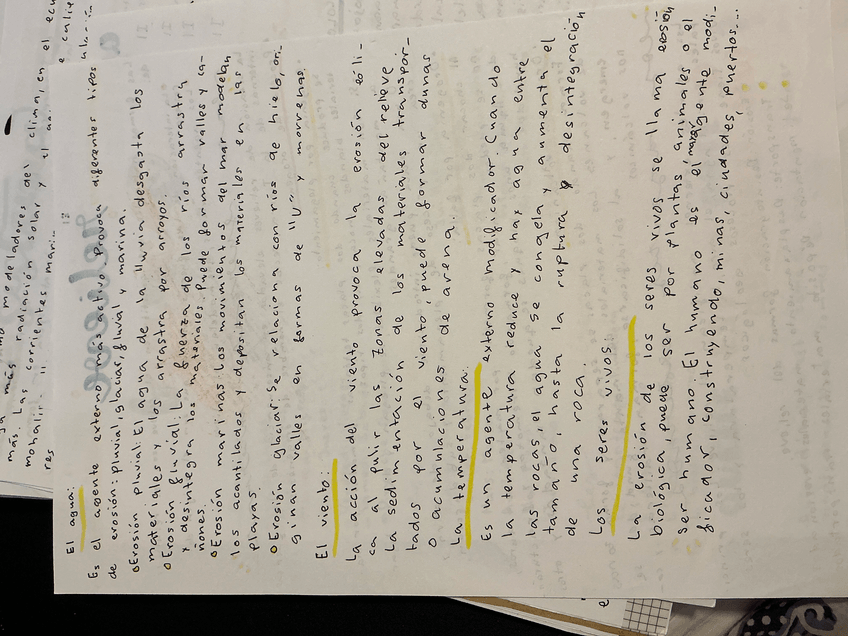 más. Las radiación solar y el
corrientes
El agua:
Es el agente externo más activo. Provoca diferentes tipos
de erosión: pluvial, glaciar, fluvial y marina.
Erosión pluvial: El agua de la lluvia desgasta los
materiales y los arrastra por arroyos.
Erosión fluvial: La fuerza de los ríos arrastra
y desintegra los materiales. Puede formar valles y ca-
ñones.
Erosión marina: Los movimientos del mar modelan
los acantilados y depositan los materiales en las
playas.
Erosión glaciar: Se relaciona con ríos de hielo, ori-
ginan valles en formas de "U" y morrenas.
El viento:
La acción del viento provoca la erosión eóli-
ca al pulir las zonas elevadas del relieve
La sedimentación de los materiales transpor-
tados por el viento, puede formar dunas
o acumulaciones de arena.
La temperatura:
Es un agente externo modificador. Cuando
la temperatura reduce y hay agua entre
las rocas, el agua se congela y aumenta el
tamaño, hasta la ruptura y desintegración
de una roca.
Los seres vivos:
La erosión de los seres vivos se llama erosión
biológica, puede ser por plantas, animales o el
ser humano. El humano es el mayor agente modi-
ficador, construyendo, minas, ciudades, puertos...